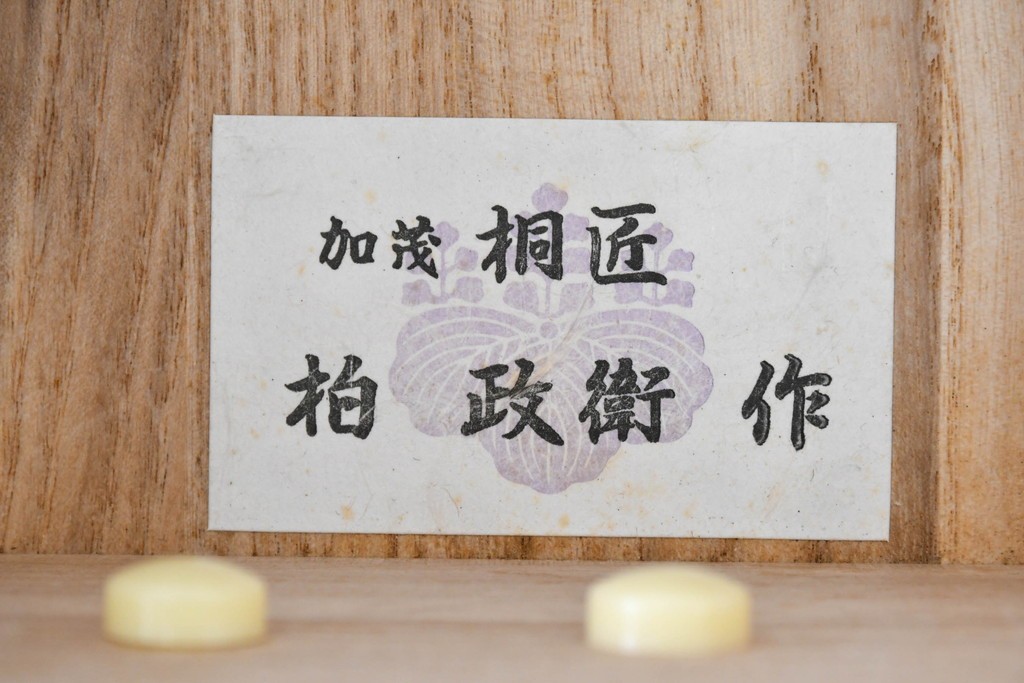 加茂 桐匠
柏 政衛 作